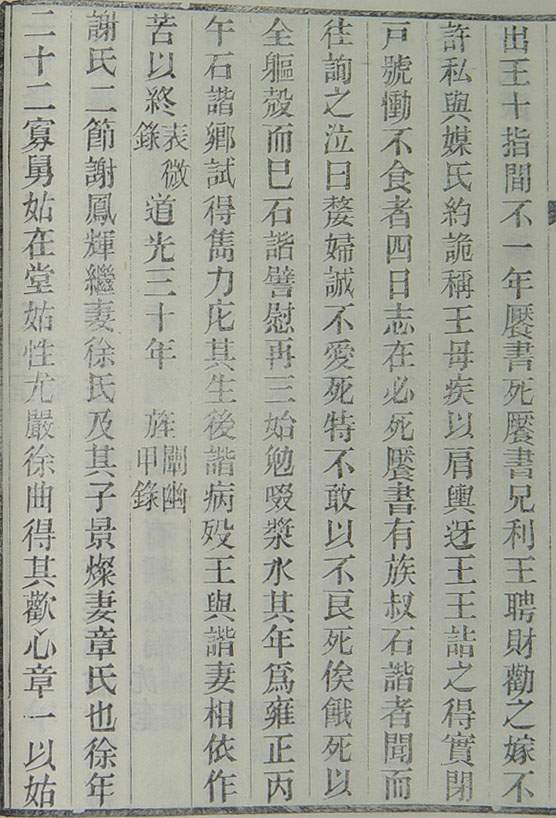 出王十指間不一年饜書死饜書兄利王聘財勸之嫁不
許私與媒氏約詭稱王母疾以肩輿迓王王詰之得實閉
戸號慟不食者四日志在必死饜書有族叔石諧者聞而
往詢之泣曰嫠婦誠不愛死特不敢以不良死俟餓死以
全軀殼而已石諧譬慰再三始勉啜漿水其年爲雍正丙
午石諧鄉試得雋力庀其生後諧病殁王與諧妻相依作
苦以終表微錄道光三十年 旌闡幽甲錄
謝氏二節謝鳳輝繼妻徐氏及其子景燦妻章氏也徐年
二十二寡舅姑在堂姑性尤嚴徐曲得其歡心章一以姑